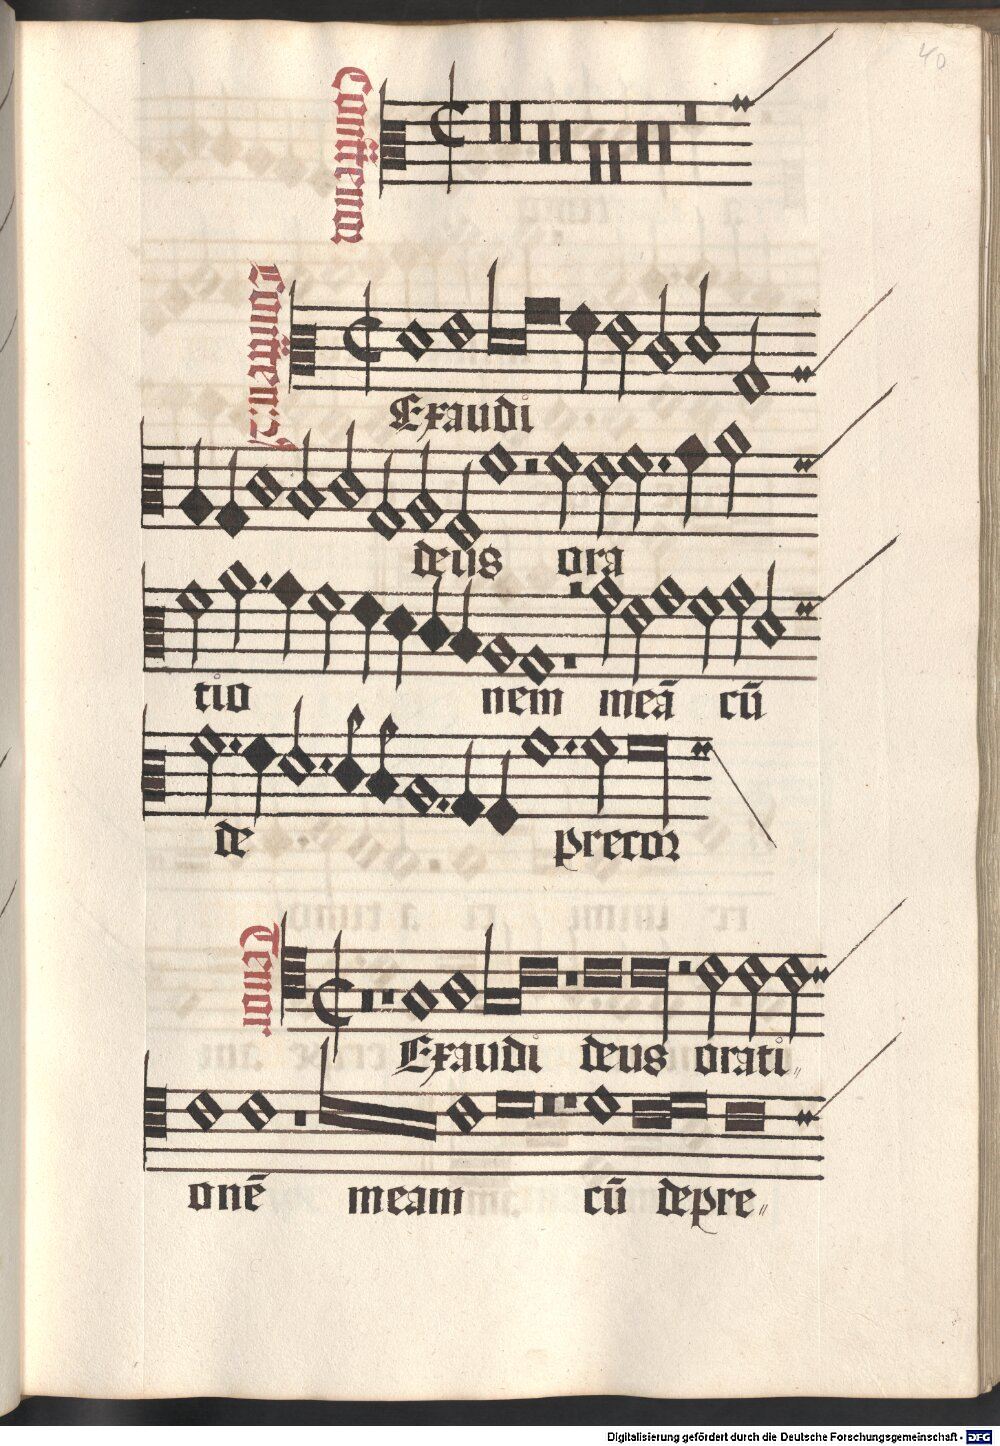 40
Contratenor
Contraten: 2
Exaudi
deus ora
tio nem meā cū
de precor
Tenor
Exaudi deus orati〃
onē meam cū depre〃
Digitalisierung gefördert durch die Deutsche Forschungsgemeinschaft - DFG